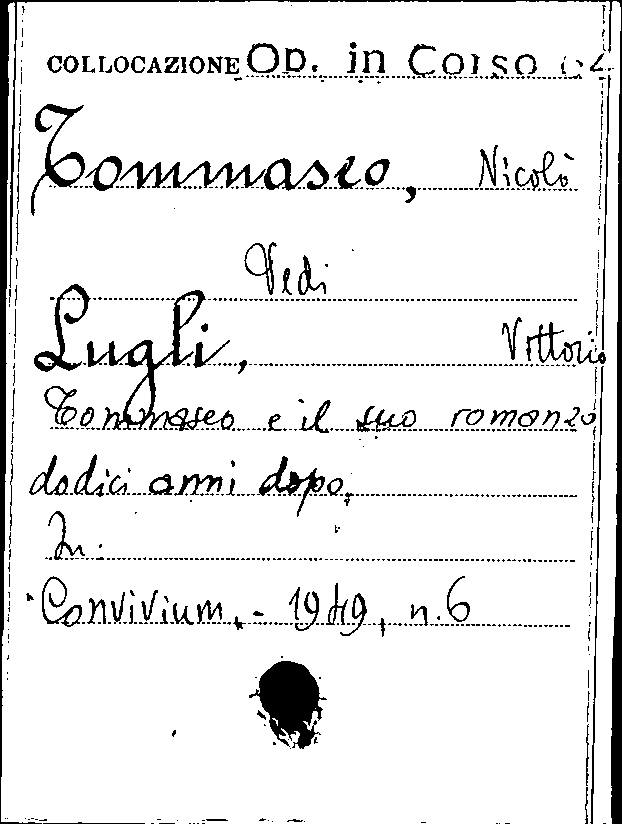 COLLOCAZIONE OD. in Corso 64
Tommaseo, Nicolò
Vedi
Lugli, Vittorio
Tommaseo e il suo romanzo
dodici anni dopo.
In:
Convivium. - 1949, n. 6